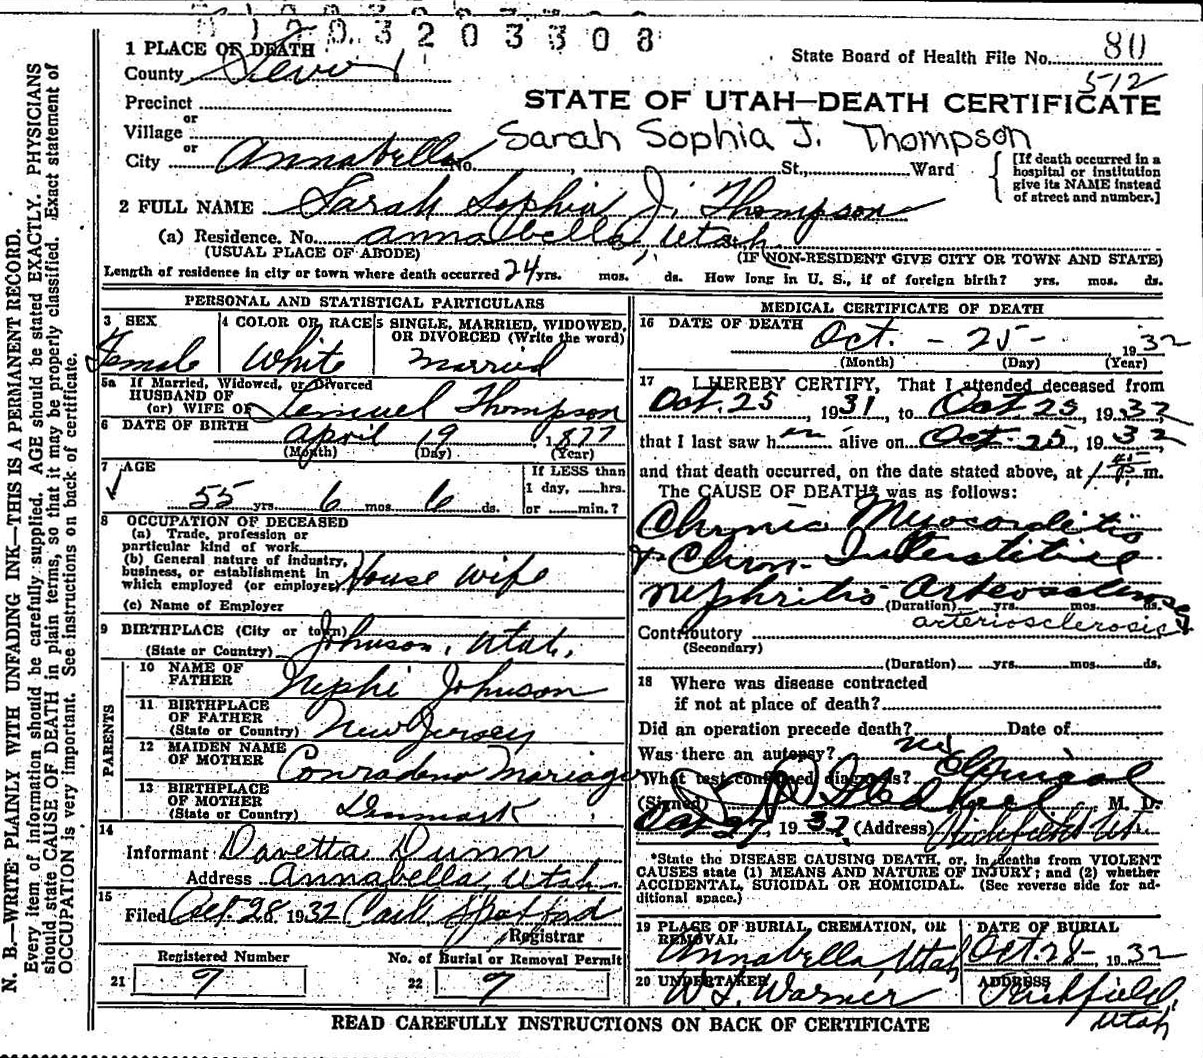 0 1 2 0 3 2 0 3 3 0 8
1 PLACE OF DEATH
County Sevier
State Board of Health File No. 80
512
Precinct
or
Village
or
STATE OF UTAH—DEATH CERTIFICATE
Sarah Sophia J. Thompson
City Annabella No. St., Ward
[If death occurred in a hospital or institution give its NAME instead of street and number.]
2 FULL NAME Sarah Sophia J. Thompson
(a) Residence. No. Annabella, Utah.
(USUAL PLACE OF ABODE) (IF NON-RESIDENT GIVE CITY OR TOWN AND STATE)
Length of residence in city or town where death occurred 24 yrs. mos. ds. How long in U. S., if of foreign birth? yrs. mos. ds.
PERSONAL AND STATISTICAL PARTICULARS
3 SEX
Female
4 COLOR OR RACE
White
5 SINGLE, MARRIED, WIDOWED, OR DIVORCED (Write the word)
Married
5a If Married, Widowed, or Divorced
HUSBAND OF
(or) WIFE OF Lemuel Thompson
6 DATE OF BIRTH April 19 1877
(Month) (Day) (Year)
7 AGE
55 yrs. 6 mos 6 ds.
If LESS than
1 day, hrs.
or min.?
8 OCCUPATION OF DECEASED
(a) Trade, profession or particular kind of work
(b) General nature of industry, business, or establishment in which employed (or employer) House Wife
(c) Name of Employer
9 BIRTHPLACE (City or town)
(State or Country) Johnson, Utah.
PARENTS
10 NAME OF FATHER Nephi Johnson
11 BIRTHPLACE OF FATHER
(State or Country) New Jersey
12 MAIDEN NAME OF MOTHER Conradena Mariager
13 BIRTHPLACE OF MOTHER
(State or Country) Denmark
14
Informant Davetta Dunn
Address Annabella, Utah
15
Filed Oct. 28 1932 Carl Spafford
Registrar
Registered Number
21 9
No. of Burial or Removal Permit
22 9
MEDICAL CERTIFICATE OF DEATH
16 DATE OF DEATH Oct. - 25 - 1932
(Month) (Day) (Year)
17 I HEREBY CERTIFY, That I attended deceased from
Oct. 25, 1931, to Oct 25, 1932
that I last saw h alive on Oct. 25, 1932
and that death occurred, on the date stated above, at 1 45 m.
The CAUSE OF DEATH* was as follows:
Chronic Myocarditis
+ Chron- Interstitial
Nephritis Arteosclerose
(Duration) yrs. mos. ds.
arteriosclerosis
Contributory
(Secondary)
(Duration) yrs. mos. ds.
18 Where was disease contracted
if not at place of death?
Did an operation precede death? Date of
Was there an autopsy? no
What test confirmed diagnosis? Clinical
(Signed) M. D.
Oct 27, 1932 (Address) Richfield Ut.
*State the DISEASE CAUSING DEATH, or, in deaths from VIOLENT
CAUSES state (1) MEANS AND NATURE OF INJURY; and (2) whether
ACCIDENTAL, SUICIDAL OR HOMICIDAL. (See reverse side for additional space.)
19 PLACE OF BURIAL, CREMATION, OR REMOVAL
Annabella, Utah
DATE OF BURIAL
Oct. 28 - 1932
20 UNDERTAKER
W. L. Warner
ADDRESS
Richfield, Utah
READ CAREFULLY INSTRUCTIONS ON BACK OF CERTIFICATE
N. B.—WRITE PLAINLY WITH UNFADING INK—THIS IS A PERMANENT RECORD.
Every item of information should be carefully supplied. AGE should be stated EXACTLY. PHYSICIANS
should state CAUSE OF DEATH in plain terms, so that it may be properly classified. Exact statement of
OCCUPATION is very important. See instructions on back of certificate.